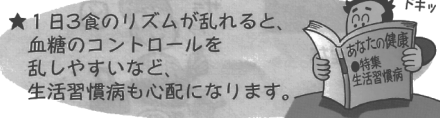 ★１日3食のリズムが乱れると、
血糖のコントロールを
乱しやすいなど、
生活習慣病も心配になります。
ドキッ
あなたの健康
●特集
生活習慣病